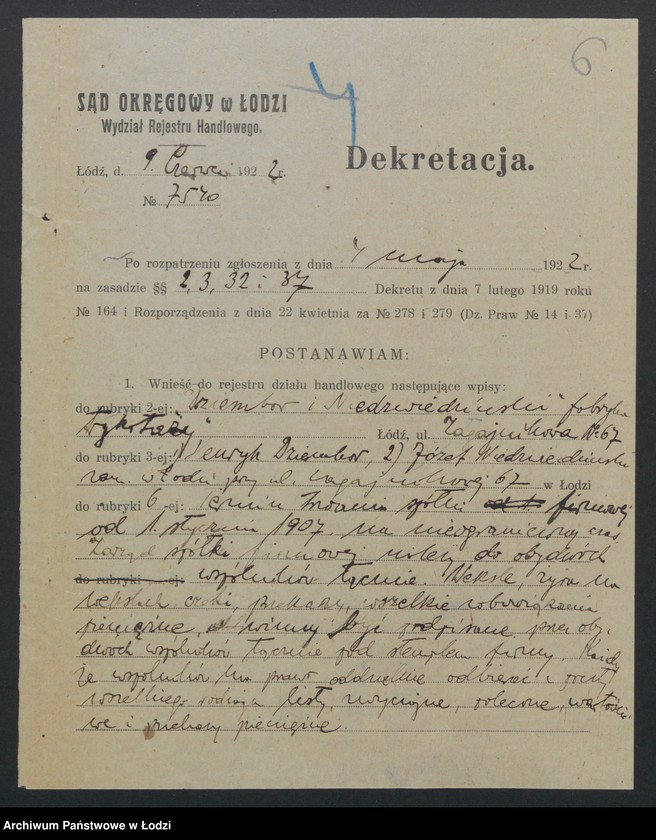 6
4
SĄD OKRĘGOWY w ŁODZI
Wydział Rejestru Handlowego.
Dekretacja.
Łódź, d. 9 Czerwca 1922 r.
№ 7540
Po rozpatrzeniu zgłoszenia z dnia maja 1922 r.
na zasadzie §§ 2, 3, 32 i 37 Dekretu z dnia 7 lutego 1919 roku
№ 164 i Rozporządzenia z dnia 22 kwietnia za № 278 i 279 (Dz. Praw № 14 i 37)
POSTANAWIAM:
1. Wnieść do rejestru działu handlowego następujące wpisy:
do rubryki 2-ej: "Dziembor i Niedzwiedziński" fabryka
Łódź, ul. Zagajnikowa № 67
do rubryki 3-ej: 1) Henryk Dziembor, 2) Józef Niedzwiedziński
zam. w Łodzi przy ul. Zagajnikowej 67 w Łodzi
do rubryki 6-ej: trwania spółki firmowej
od 1 stycznia 1907 na nieograniczony czas
Zarząd spółki firmowej należy do obydwóch
do rubryki -ej: wspólników łącznie. Weksle, żyra na
wekslach, czeki, przekazy, wszelkie zobowiązania
pieniężne, winny być podpisane przez oby-
dwóch wspólników łącznie pod stemplem firmy. Każdy
ze wspólników ma prawo oddzielnie odbierać z poczty
wszelkiego rodzaju listy, zwyczajne, polecone, wartościo-
we i pieniężne.
Archiwum Państwowe w Łodzi